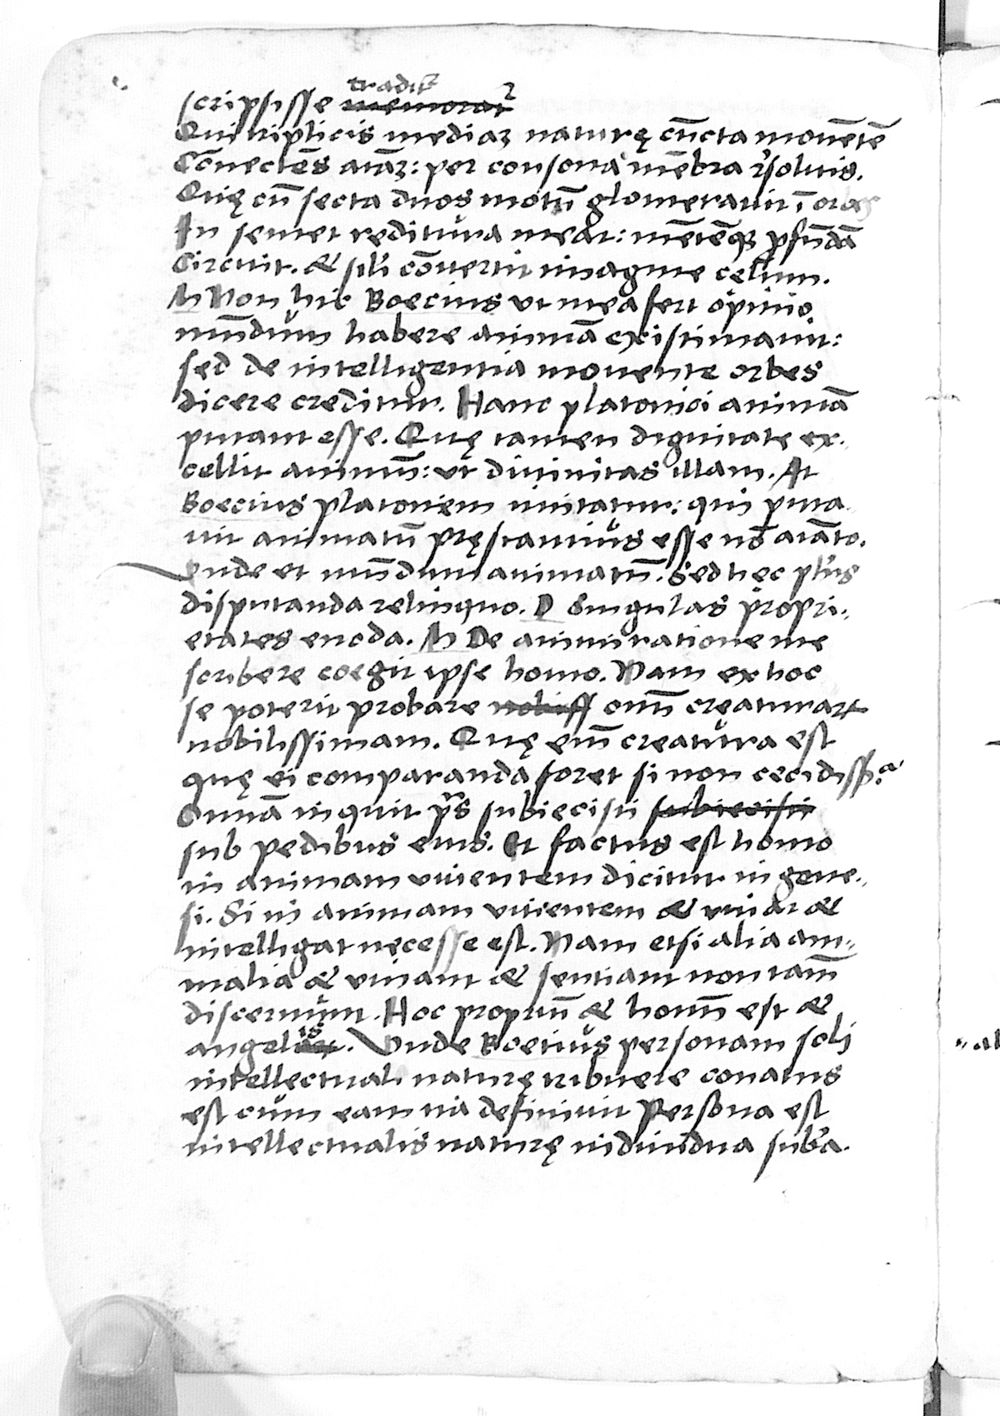 scripsisse tradit͛ memorat͛
Qui triplicis mediaꝫ naturę cūcta mouētē
Cōnectēs aīaꝫ: per consona mēbra r̃soluis.
Quę cū secta duos motū glomerauit ī orbes
In semet reditura meat: mētēqꝫ ꝓfūdā
Circuit. & sil'i cōuertit imagine celum.
M Non hic Boecius ut mea fert opinio
mūdum habere animā existimauit:
sed de intelligentia mouente orbes
dicere creditur. Hanc platonici animā
putant esse. Quę tamen dignitate ex-
cellit animū: ut diuinitas illam. At
Boecius platonem imitatur: qui puta
uit animatū pręstantius esse nō aīato.
Vnde et mūdum animatū. Sed hęc plurib͛
disputanda relinquo. D Singulas propri-
etates enoda. M De animi ratione me
scribere coegit ipse homo. Nam ex hoc
se poterit probare nobiliss omnī creaturaꝝ
nobilissimam. Quę em̄ creatura est
quę ei comparanda foret si non cecidissꝫ?
Omnia inquit p̄s subiecisti subiecisti
sub pedibus eius. Et factus est homo
in animam uiuentem dicitur in gene-
si. Si in animam uiuentem & uiuat &
intelligat necesse est. Nam etsi alia ani-
malia & uiuant & sentiant non tamē
discernunt. Hoc propriū & hominū est &
angelis. Vnde Boetius personam soli
intellectuali naturę tribuere conatus
est cum eam ita definiuit Persona est
intellectualis naturę indiuidua sub'a.